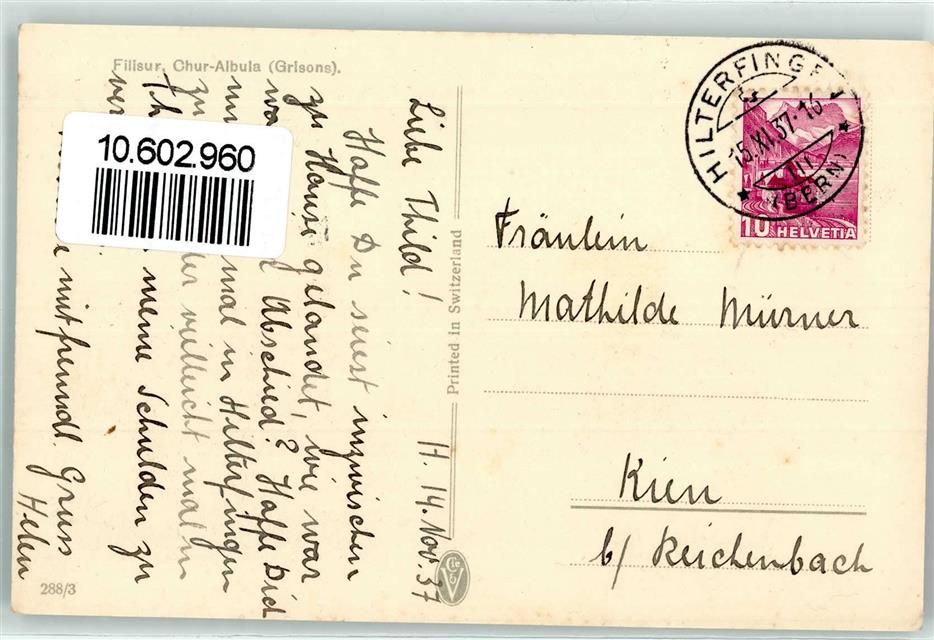 Filisur, Chur-Albula (Grisons).
10.602.960
H. 14. Nov. 37
Liebe Thild!
Hoffe Du seiest inzwischen
zu Hause gelandet, wie war
Abschied? Hoffe Dich
mal in Hilterfingen
zu vielleicht mal in
Th meine Schulden zu
ver
mit freundl. Gruss
Helen
288/3
Printed in Switzerland
Cie
HILTERFINGEN
15.XI.37-16
(BERN)
10 HELVETIA
Fräulein
Mathilde Mürner
Kien
b/ Reichenbach